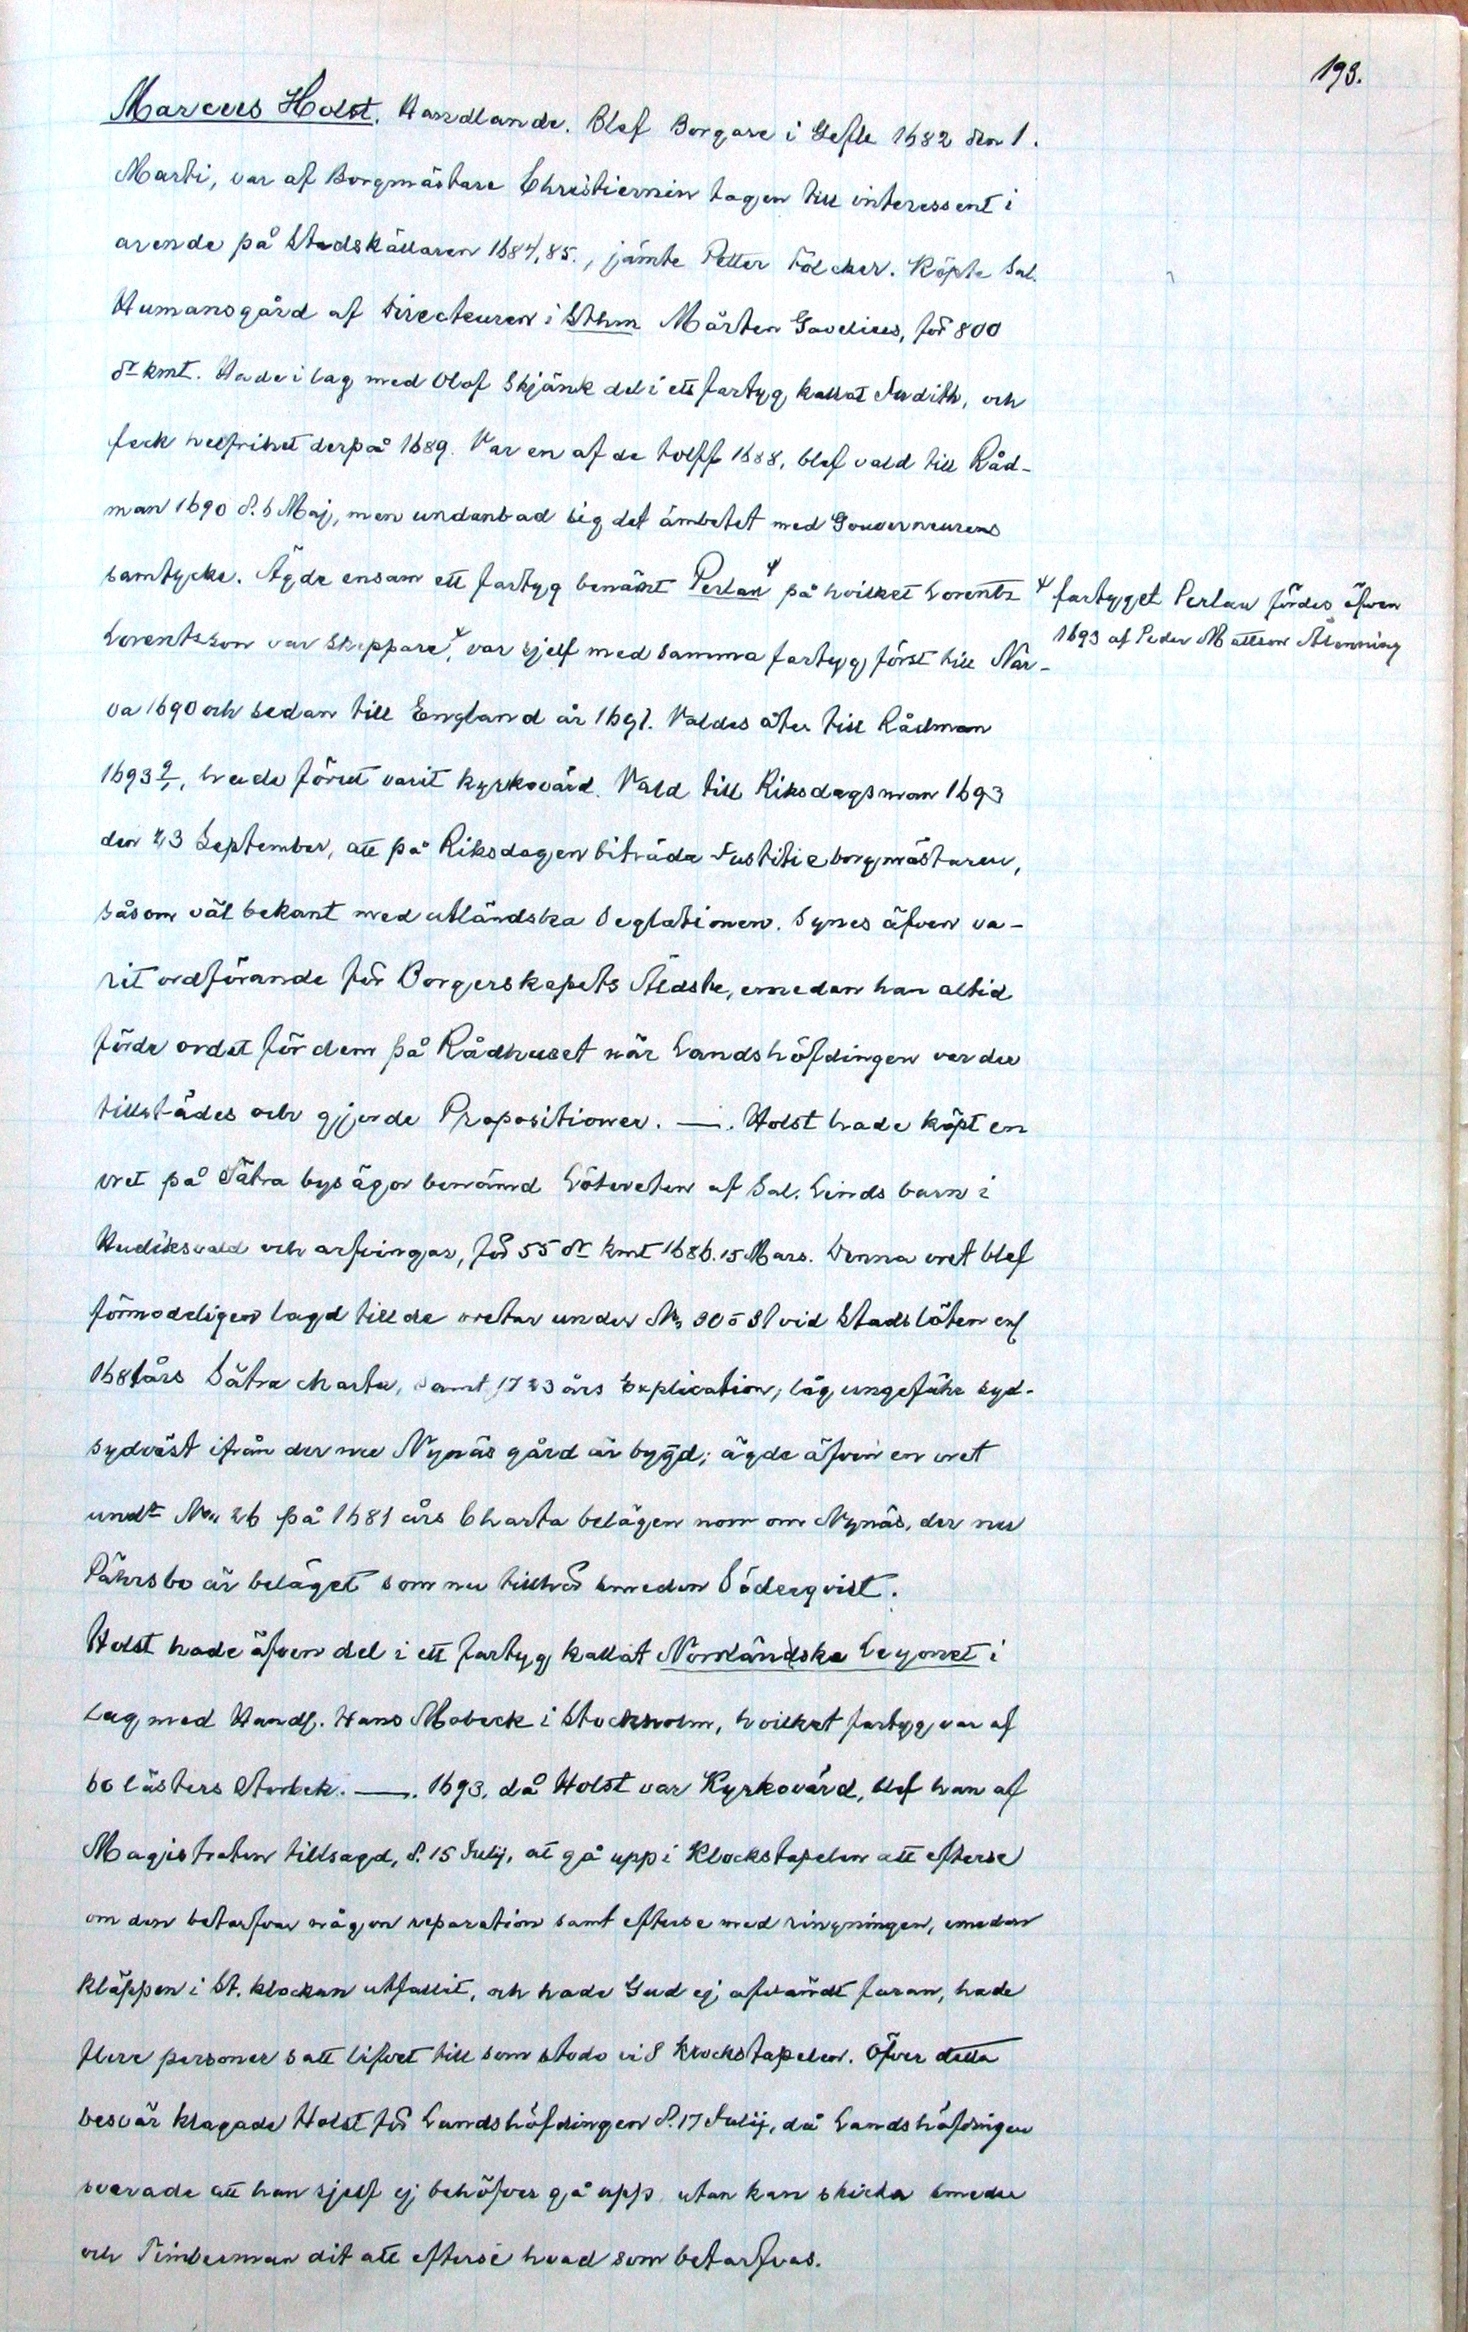 193.
Marcus Holst. Handlande. Blef Borgare i Gefle 1682 den 1.
Marti, var af Borgmästare Christiernin tagen till interessent i
arende på Stadskällaren 1684,85., jämte Petter Fölcker. Köpte Sal.
Humansgård af Directeuren i Sthm Mårten Gavelius, för 800
dr kmt. Hade i lag med Olof Skjänk del i ett fartyg kallat Judith, och
feck helfrihet derpå 1689. Var en af de tolff 1688, blef vald till Råd-
man 1690 d. 6 Maj, men undanbad sig det ämbetet med Gouverneurens
samtycke. Ägde ensam ett fartyg benämt Perlan ψ på hvilket Lorentz
Lorentsson var skeppare, ψ var sjelf med samma fartyg först till Nar-
va 1690 och sedan till England år 1691. Valdes åter till Rådman
1693, hade förut varit kyrkovärd. Vald till Riksdagsman 1693
den 23 September, att på Riksdagen biträda Justitie borgmästaren,
såsom väl bekant med utländska Seglationen. Synes äfven va-
rit ordförande för Borgerskapets Äldste, emedan han altid
förde ordet för dem på Rådhuset när Landshöfdingen var der
tillstädes och gjorde Propositioner. —. Holst hade köpt en
vret på Sätra bys ägor benämnd Lötvreten af Sal. Linds barn i
Hudiksvald och arfvingar, för 55 dr kmt 1686. 15 Mars. Denna vret blef
förmodeligen lagd till de vretar under No 30 o 31 vid Stadslöten enl
1681 års Sätra charta, samt 1723 års Explication, låg ungefähr syd-
sydväst ifrån der nu Nynäs gård är bygd; ägde äfven en vret
undr No 26 på 1681 års Charta belägen norr om Nynäs, der nu
Pährsbo är beläget som nu tillhör smeden Söderqvist.
Holst hade äfven del i ett fartyg kallat Norrländska Leyonet i
Lag med Handl. Hans Mobeck i Stockholm, hvilket fartyg var af
60 lästers Storlek. —. 1693, då Holst var Kyrkovärd, blef han af
Magistraten tillsagd, d. 15 Julij, at gå upp i Klockstapelen att efterse
om den betarfvar någon reparation samt efterse med ringningen, emedan
kläppen i St. klockan utfallit, och hade Gud ej afvändt faran, hade
flere personer satt lifvet till som stodo vid Klockstapelen. Öfver detta
besvär klagade Holst för Landshöfdingen d. 17 Julij, då Landshöfdingen
svarade att han sjelf ej behöfver gå upp, utan kan skicka smeder
och Timberman dit att efterse hvad som betarfvas.
ψ fartyget Perlan fördes äfven
1693 af Peder Mattson